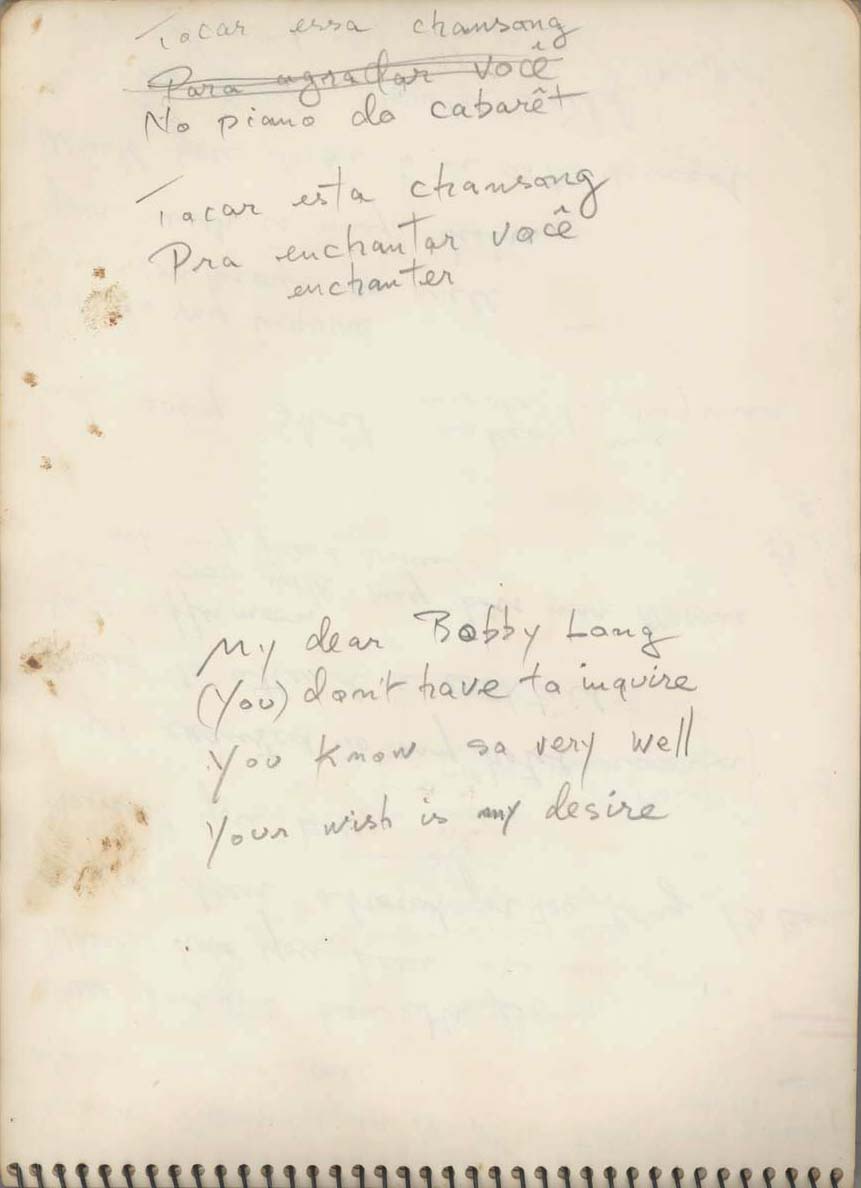 Tocar essa chansong
Para agradar você
No piano do cabarêt
Tocar esta chansong
Pra enchantar você
enchanter
My dear Bobby Long
(You) don't have to inquire
You know so very well
Your wish is my desire